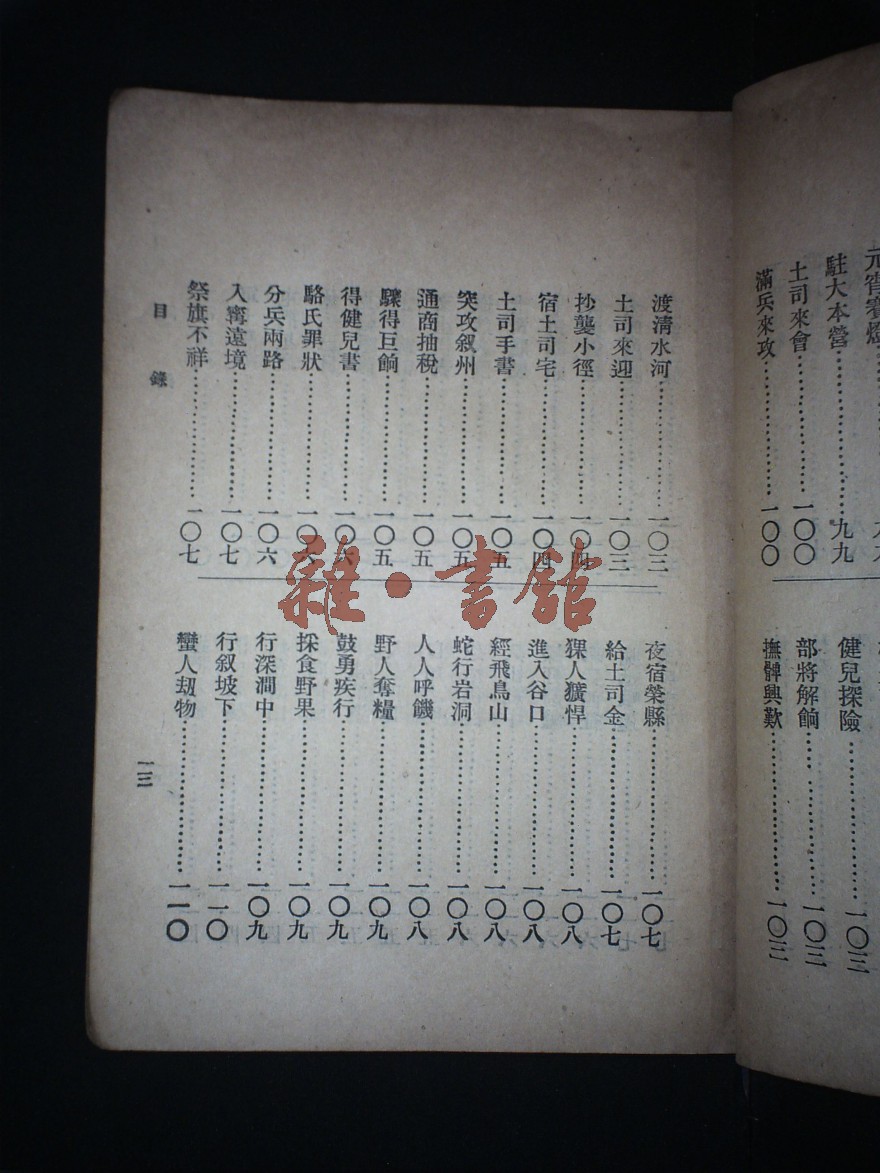 元宵賽燈
駐大本營…………九九
土司來會…………一〇〇
滿兵來攻…………一〇〇
健兒探險…………一〇三
部將解餉…………一〇三
撫髀興歎…………一〇三
渡清水河…………一〇三
土司來迎…………一〇三
抄襲小徑…………一〇四
宿土司宅…………一〇四
土司手書…………一〇五
突攻叙州…………一〇五
通商抽稅…………一〇五
驟得巨餉…………一〇五
得健兒書…………一〇六
駱氏罪狀…………一〇六
分兵兩路…………一〇六
入寗遠境…………一〇七
祭旗不祥…………一〇七
夜宿榮縣…………一〇七
給土司金…………一〇七
猓人獷悍…………一〇八
進入谷口…………一〇八
經飛鳥山…………一〇八
蛇行岩洞…………一〇八
人人呼饑…………一〇八
野人奪糧…………一〇九
鼓勇疾行…………一〇九
採食野果…………一〇九
行深澗中…………一〇九
行叙坡下…………一一〇
蠻人刼物…………一一〇
目錄
一三
雜·書館